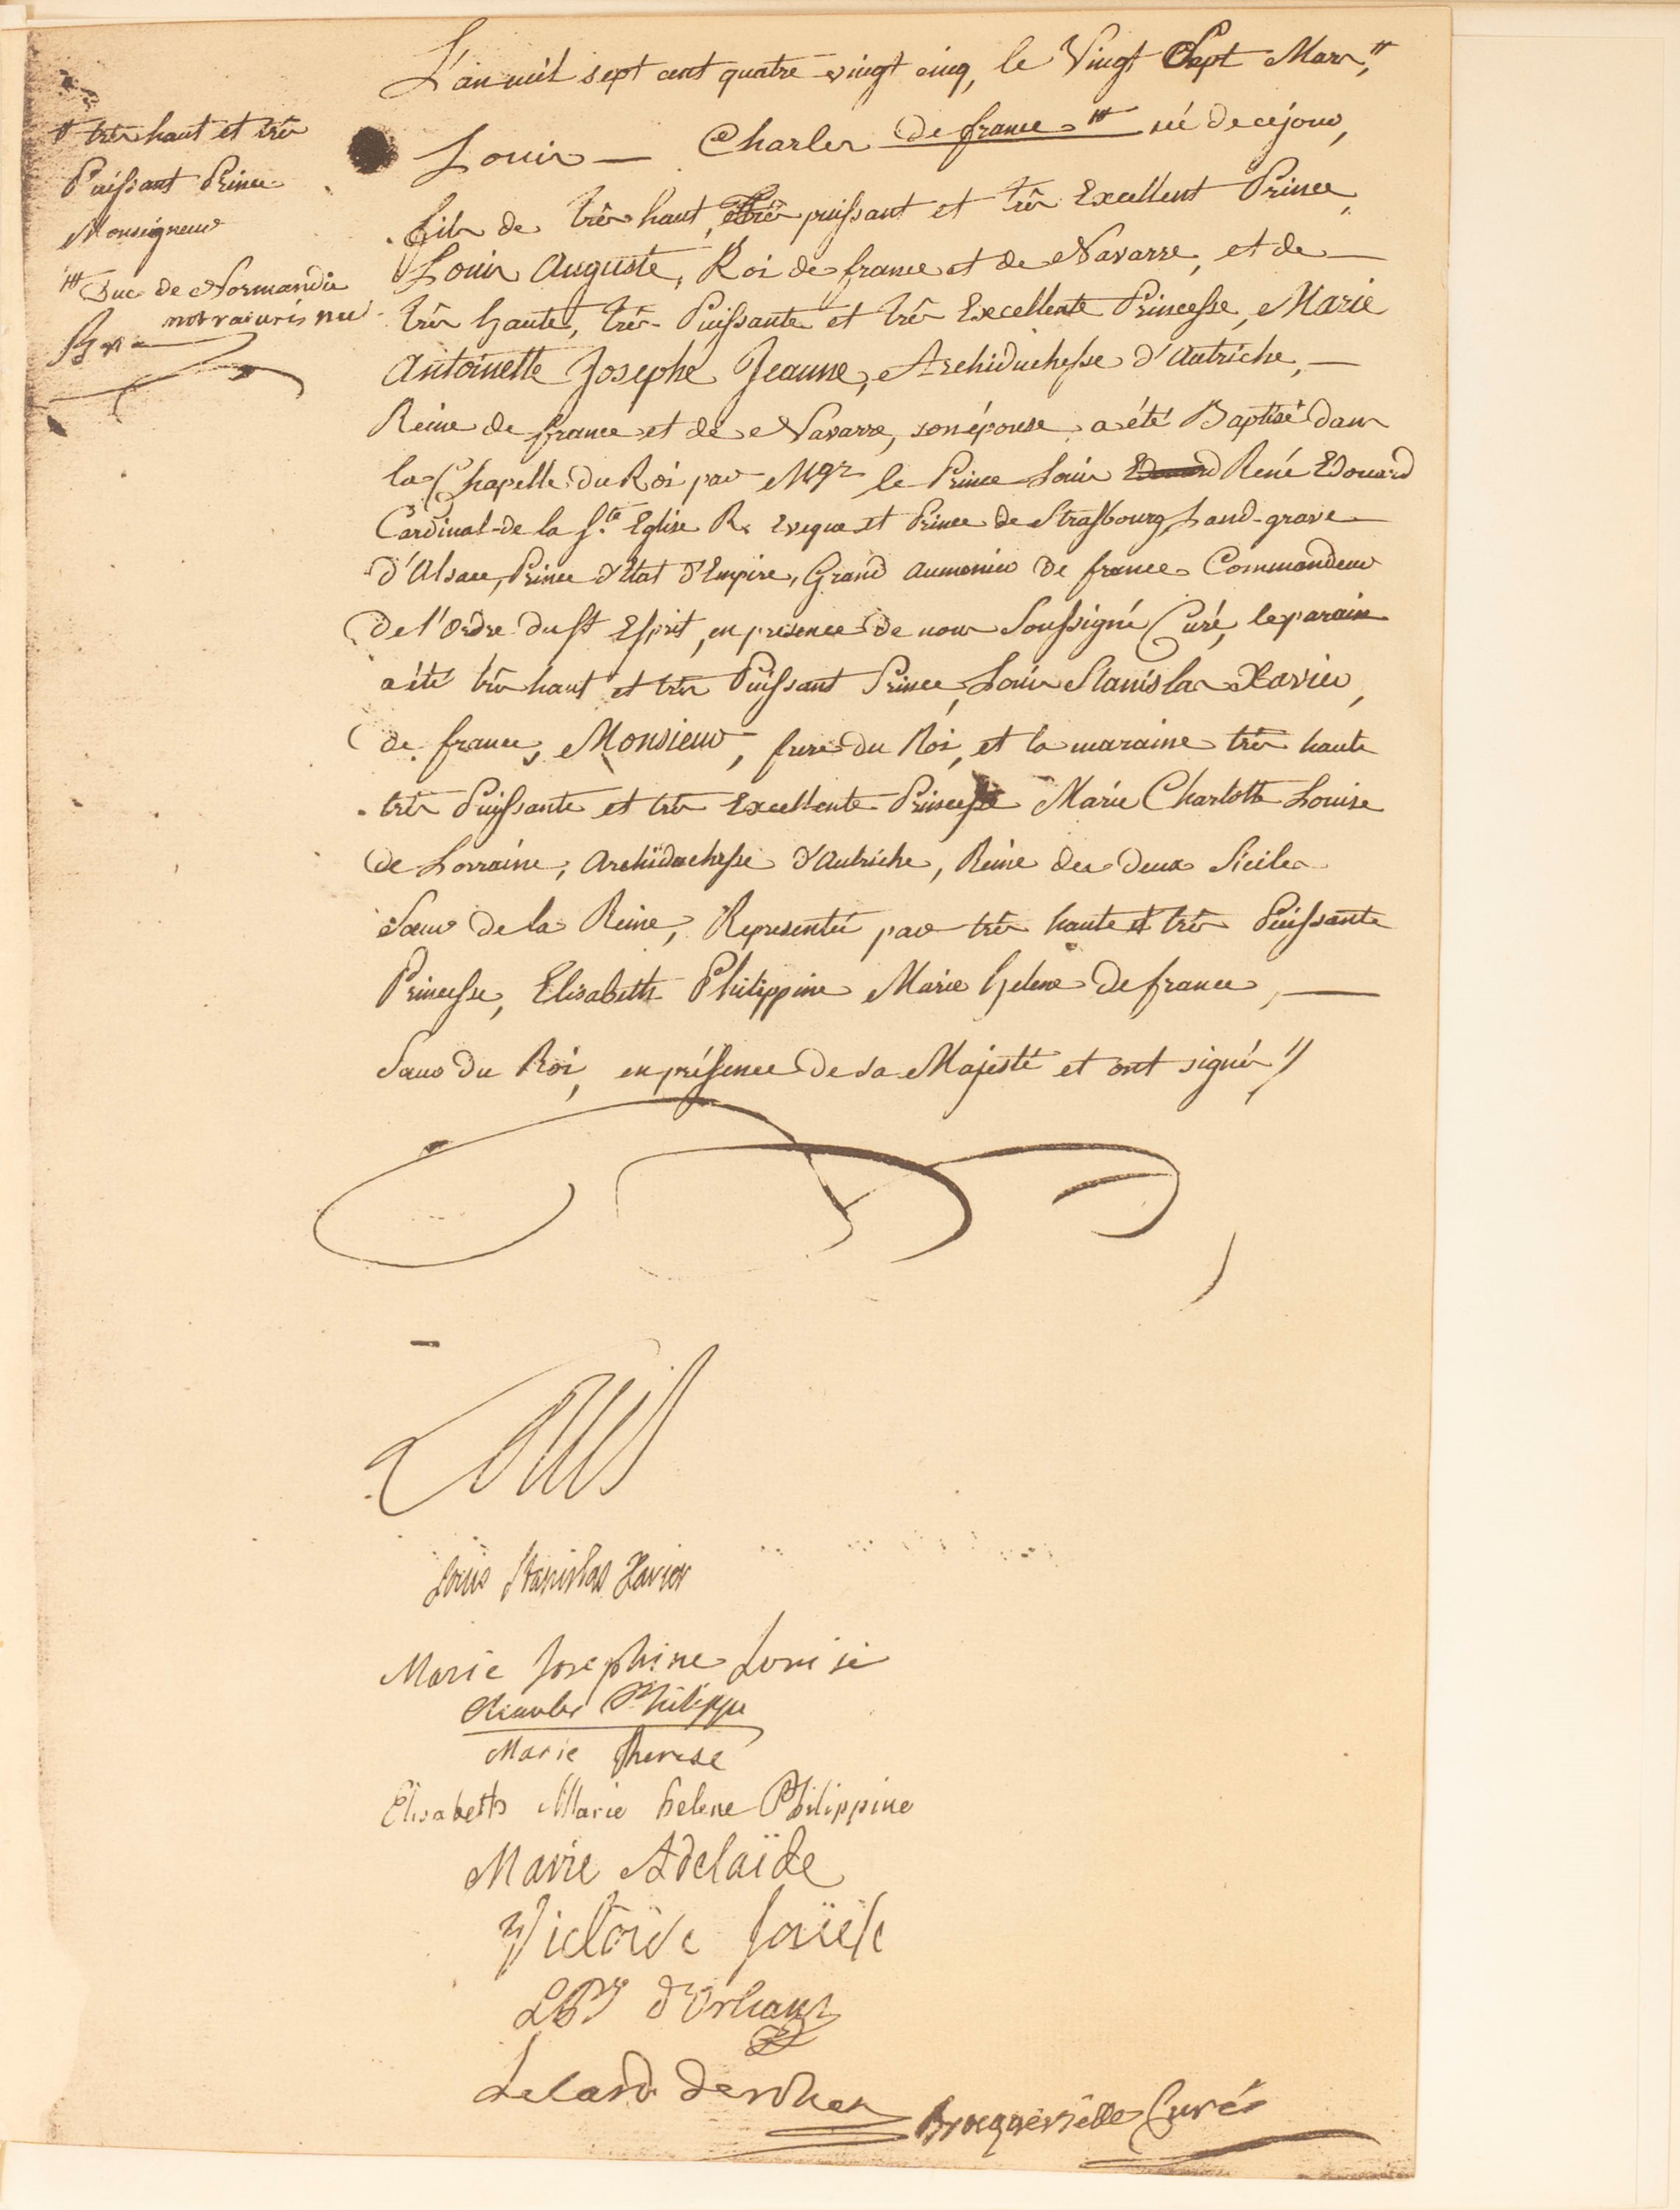 L'an mil sept cent quatre vingt cinq, le Vingt Sept Mars,
# très haut et très
Puissant Prince
Monseigneur
Duc de Normandie
Louis — Charles de france né de ce jour,
fils de très haut, très puissant et très Excellent Prince,
Louis Auguste, Roi de france et de Navarre, et de —
très haute, très Puissante et très Excellente Princesse, Marie
Antoinette Josephe Jeanne, Archiduchesse d'Autriche, —
Reine de france et de Navarre, son épouse, a été Baptisé dans
la Chapelle du Roi par Mgr le Prince Louis René Edouard
Cardinal de la Ste Eglise R. Eveque et Prince de Strasbourg, Land-grave
d'Alsace, Prince d'Etat d'Empire, Grand aumonier de france Commandeur
de l'Ordre du St Esprit, en presence de nous Soussigné Curé, le parain
a été très haut et très Puissant Prince, Louis Stanislas Xavier,
de france, Monsieur, frere du Roi, et la maraine très haute
très Puissante et très Excellente Princesse Marie Charlotte Louise
de Lorraine, Archiduchesse d'Autriche, Reine des deux Siciles
Sœur de la Reine, Representée par très haute et très Puissante
Princesse, Elisabeth Philippine Marie helene de france, —
Sœur du Roi, en présence de sa Majesté et ont signé //
Louis
Louis Stanislas Xavier
Marie Josephine Louise
Charles Philippe
Marie Therese
Elisabeth Marie helene Philippine
Marie Adelaïde
Victoire Loüise
LPJ d'Orleans
Le Card de rohan
Brocquevielle Curé